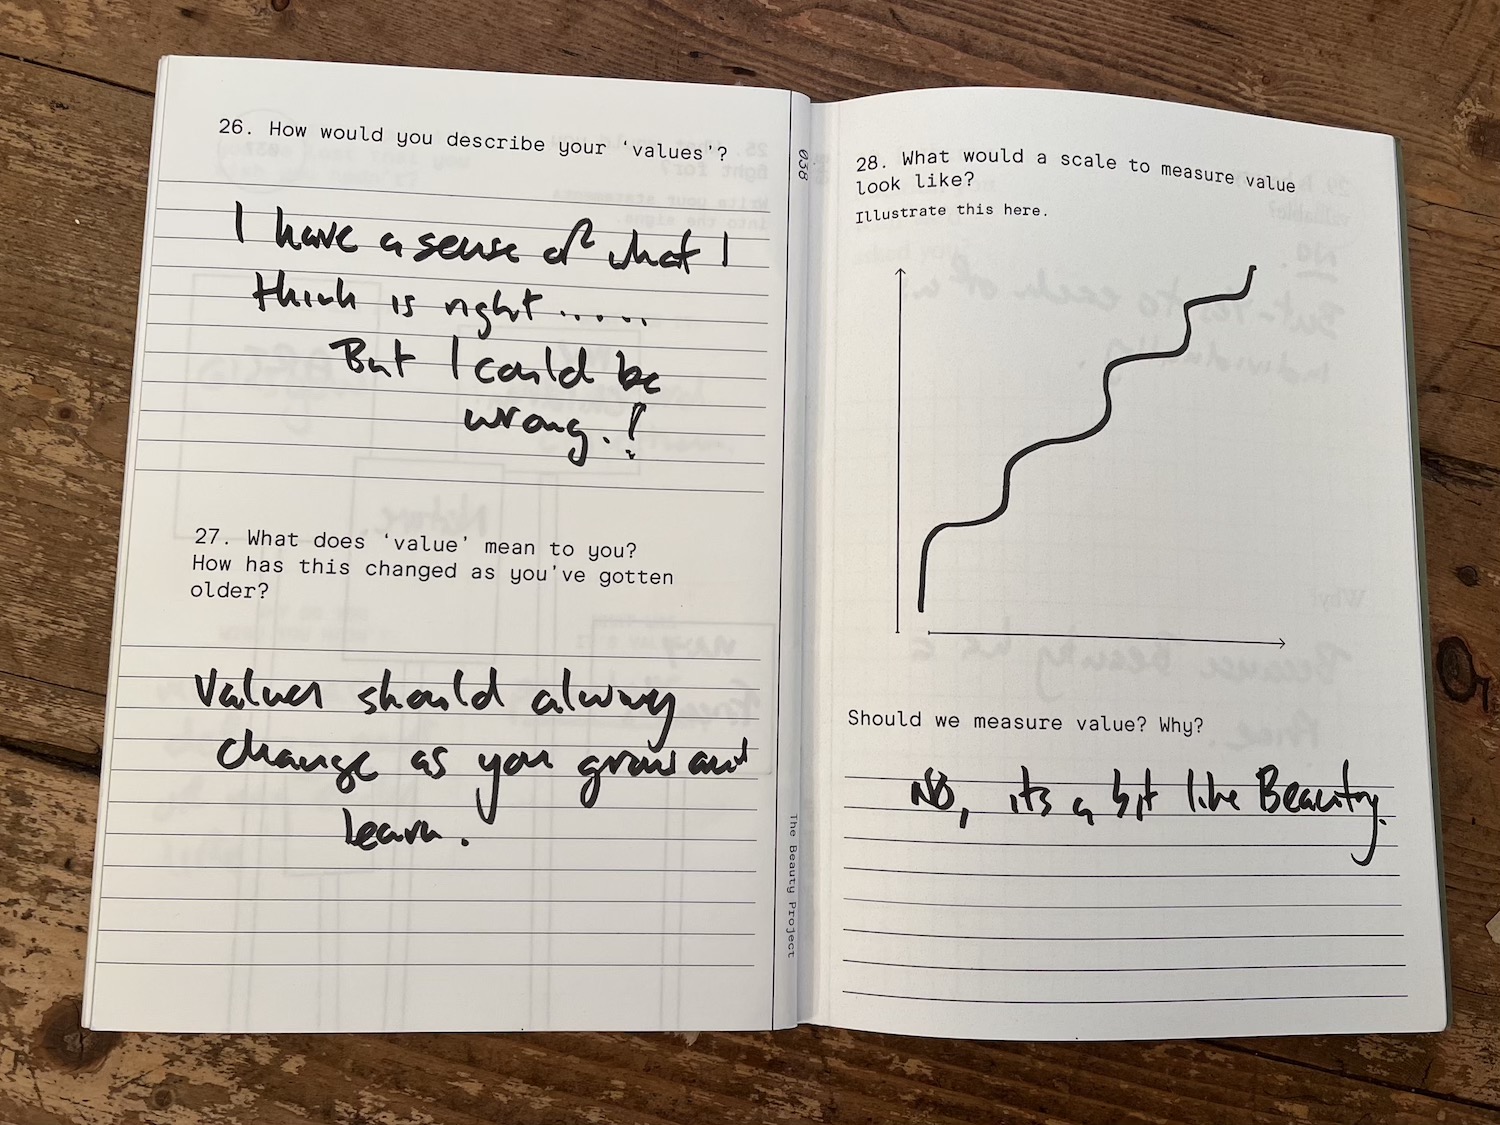 26. How would you describe your ‘values’?
I have a sense of what I
think is right.....
But I could be
wrong.!
27. What does ‘value’ mean to you?
How has this changed as you’ve gotten
older?
Values should always
change as you grow and
learn.
038
The Beauty Project
28. What would a scale to measure value
look like?
Illustrate this here.
Should we measure value? Why?
No, its a bit like Beauty.